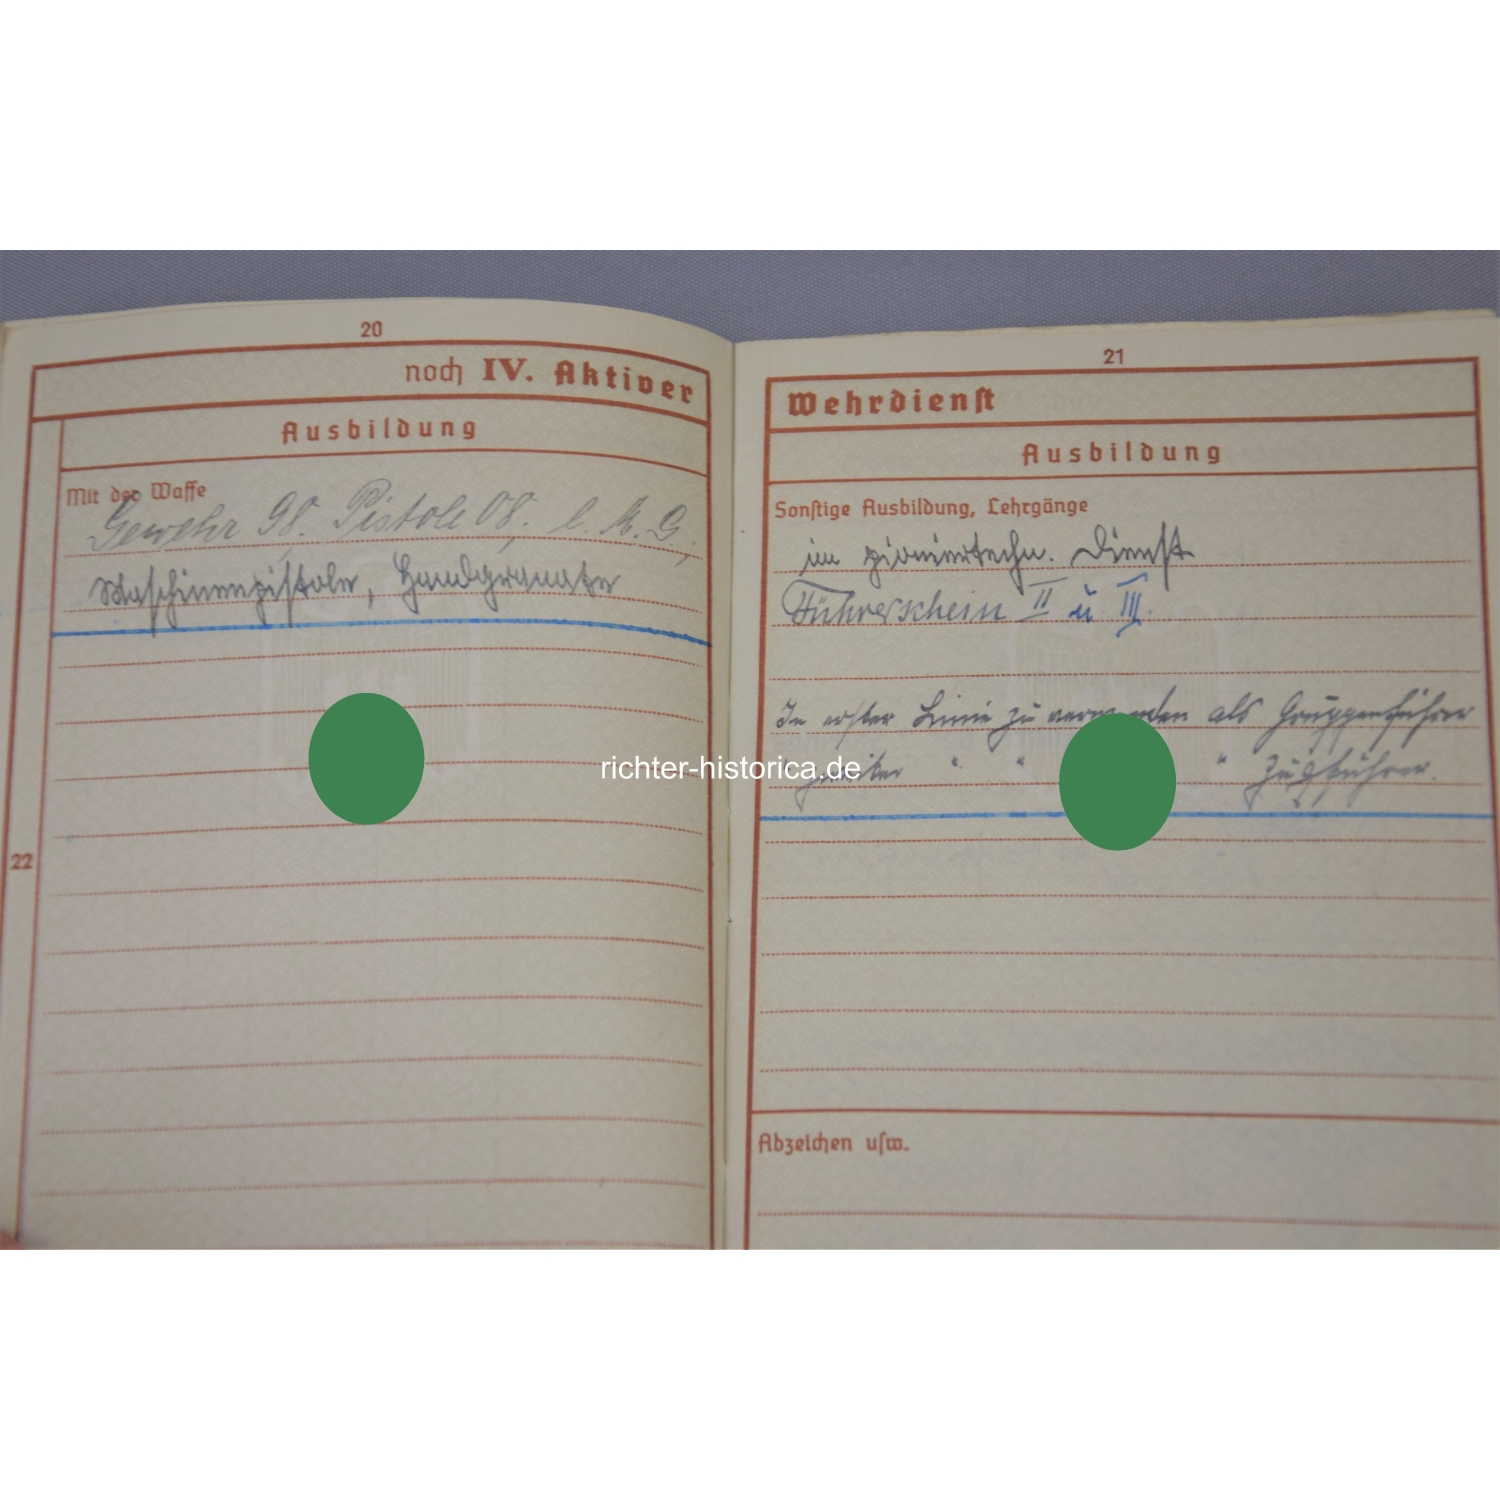 20
noch IV. Aktiver
Ausbildung
Mit der Waffe
Gewehr 98. Pistole 08, l. M. G.,
Maschinenpistole, Handgranate
22
21
Wehrdienst
Ausbildung
Sonstige Ausbildung, Lehrgänge
im pioniertechn. Dienst
Führerschein II u III.
In erster Linie zu verwenden als Gruppenführer
" zweiter " " " Zugführer.
Abzeichen usw.
richter-historica.de